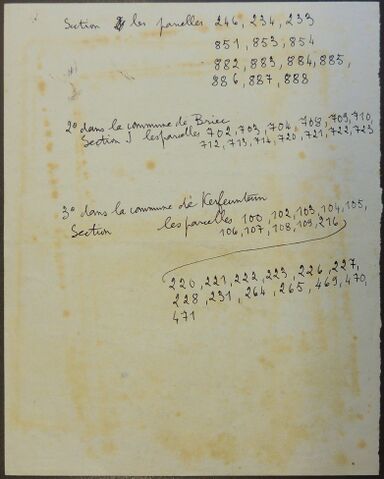 Section les parcelles 246, 234, 233
851, 853, 854
882, 883, 884, 885,
886, 887, 888
2º dans la commune de Briec
Section J les parcelles 702, 703, 704, 708, 709, 710,
712, 713, 714, 720, 721, 722, 723
3º dans la commune de Kerfeunteun
Section les parcelles 100, 102, 103, 104, 105,
106, 107, 108, 109, 216
220, 221, 222, 223, 226, 227,
228, 231, 264, 265, 469, 470,
471